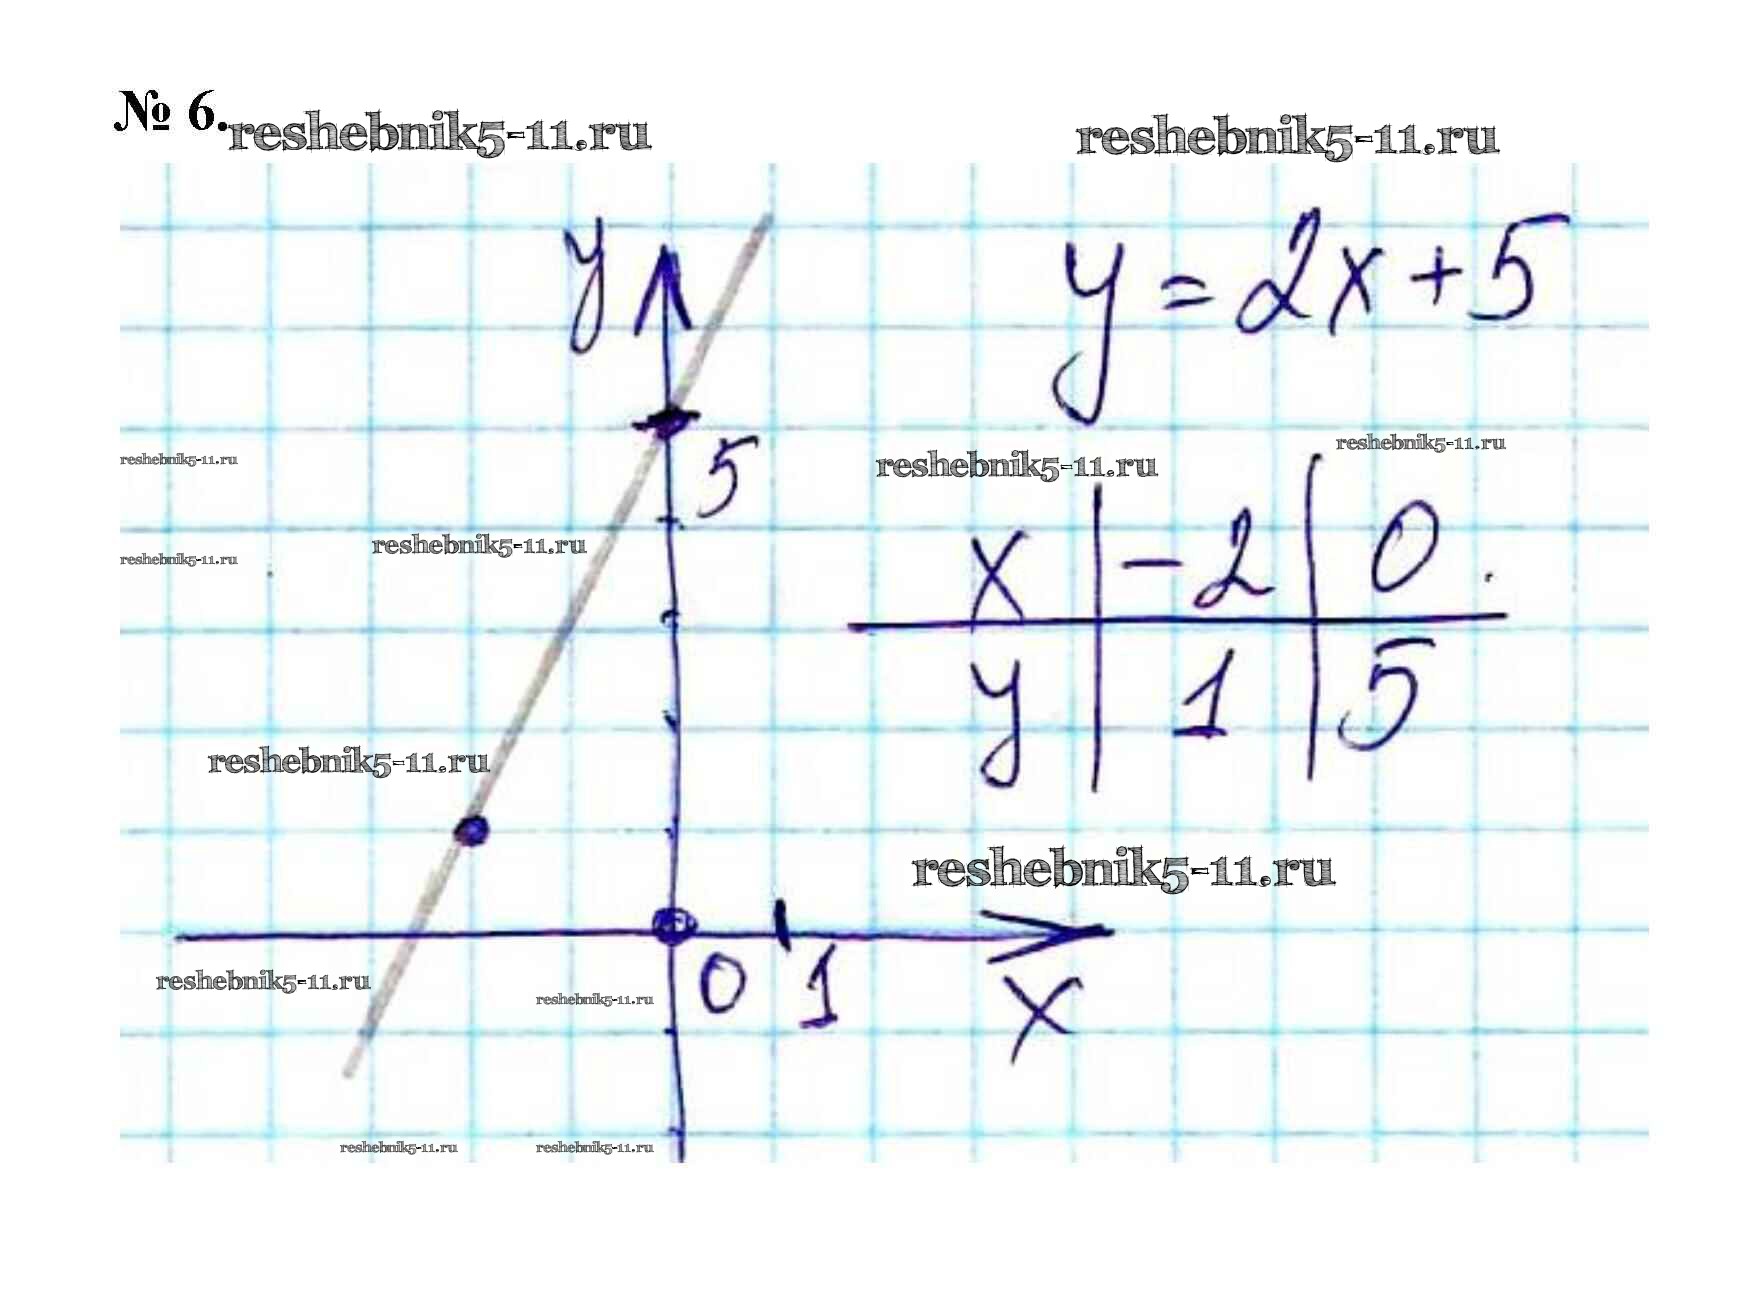 № 6.
reshebnik5-11.ru reshebnik5-11.ru
y y = 2x + 5
5
reshebnik5-11.ru reshebnik5-11.ru reshebnik5-11.ru
reshebnik5-11.ru reshebnik5-11.ru
x | -2 | 0
y | 1 | 5
reshebnik5-11.ru
reshebnik5-11.ru
0 1 x
reshebnik5-11.ru reshebnik5-11.ru
reshebnik5-11.ru reshebnik5-11.ru